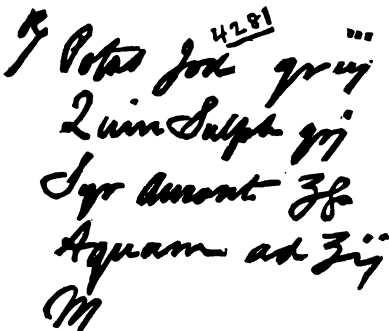 4281
℞ Potas Iod gr iij
Quin Sulph gr j
Syr Aurant ʒss
Aquam ad ℥ij
M